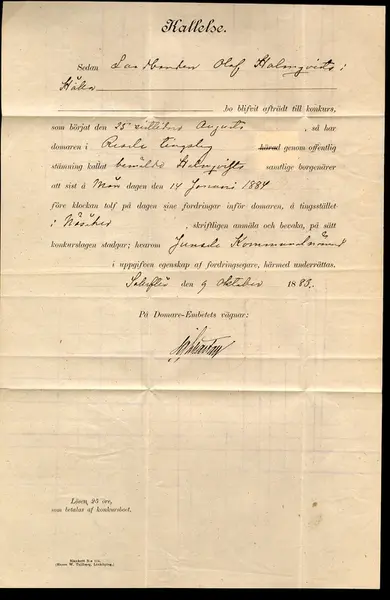 Kallelse.
Sedan Landbonden Olof Holmqvists i
Hälla
bo blifvit afträdt till konkurs,
som börjat den 25 sistlidne Augusti, så har
domaren i Resele tingslag härad genom offentlig
stämning kallat bemälde Holmqvists samtlige borgenärer
att sist å Mån dagen den 14 Januari 1884
före klockan tolf på dagen sine fordringar inför domaren, å tingsstället
i Näsåker, skriftligen anmäla och bevaka, på sätt
konkurslagen stadgar; hvarom Junsele Kommunalnämnd
i uppgifven egenskap af fordringsegare, härmed underrättas.
Sollefteå den 9 Oktober 1883.
På Domare-Embetets vägnar:
Lösen 25 öre,
som betalas af konkursboet.
Blankett N:o
(Herm. W. Tullberg, Linköping.)